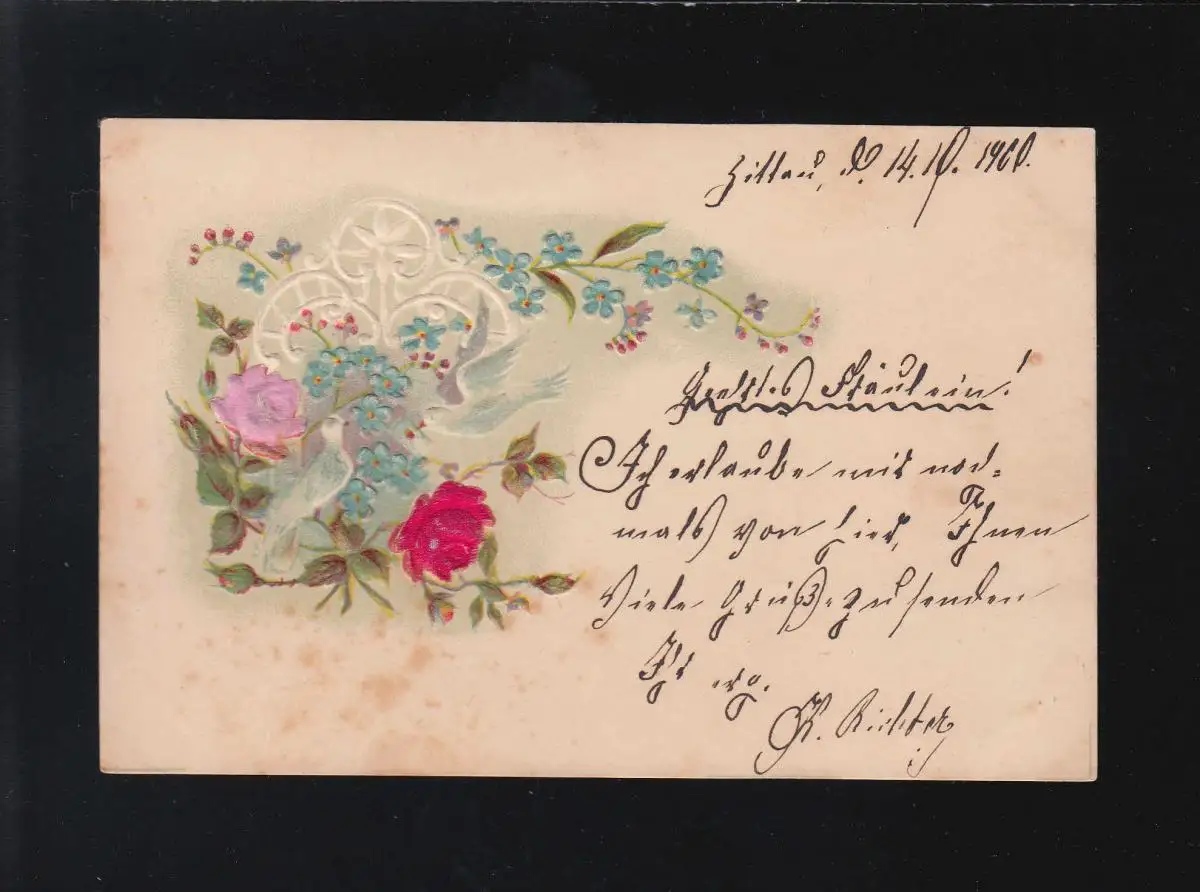 Zittau, d. 14.10.1900.
Geehrtes Fräulein!
Ich erlaube mir noch-
mals von hier, Ihnen
Viele Grüße zu senden
Ihr erg.
K. Richter